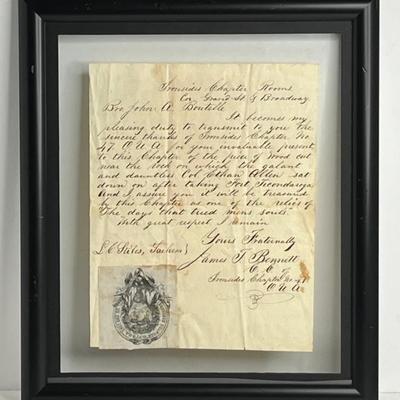 Ironsides Chapter Rooms
Cor Grand St & Broadway
Bro John A. Boutelle
It becomes my
pleasing duty to transmit to you the
sincere thanks of Ironsides Chapter No
47 O U A for your invaluable present
to this Chapter of the piece of wood cut
near the rock on which the galant
and dauntless Col Ethan Allen sat
down on after taking Fort Ticonderoga
And I assure you it will be treasured
by this Chapter as one of the relics of
The days that tried mens souls.
With great respect I remain
Yours Fraternally
L C Stiles, Sachem}
James T. Bennett
Ironsides Chapter No 47
O U A